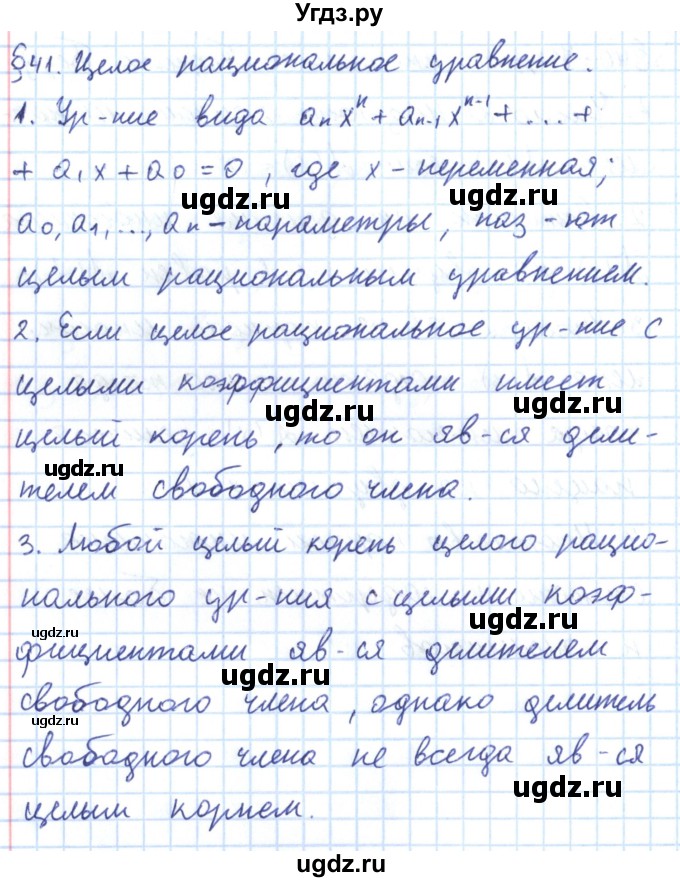 Угдз.ру
§41. Целое рациональное уравнение.
1. Ур-ние вида aₙxⁿ + aₙ₋₁xⁿ⁻¹ + ... +
+ a₁x + a₀ = 0, где x - переменная;
ugdz.ru ugdz.ru
a₀, a₁, ..., aₙ - параметры, наз-ют
целым рациональным уравнением.
ugdz.ru
2. Если целое рациональное ур-ние с
целыми коэффициентами имеет
ugdz.ru ugdz.ru
целый корень, то он яв-ся дели-
ugdz.ru
телем свободного члена.
3. Любой целый корень целого рацио-
нального ур-ния с целыми коэф-
ugdz.ru ugdz.ru
фициентами яв-ся делителем
ugdz.ru
свободного члена, однако делитель
ugdz.ru
свободного члена не всегда яв-ся
ugdz.ru
целым корнем.
ugdz.ru